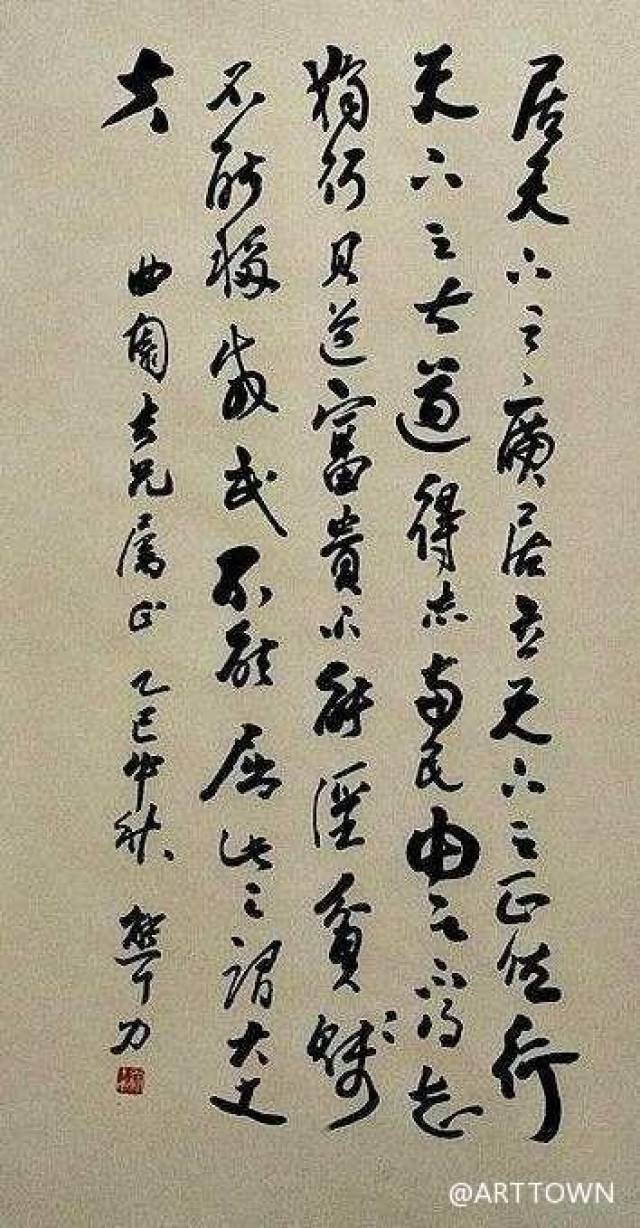 居天下之廣居立天下之正位行
天下之大道得志與民由之不得志
獨行其道富貴不能淫貧賤
不能移威武不能屈此之謂大丈
夫
曲園大兄屬正 乙巳中秋
@ARTTOWN